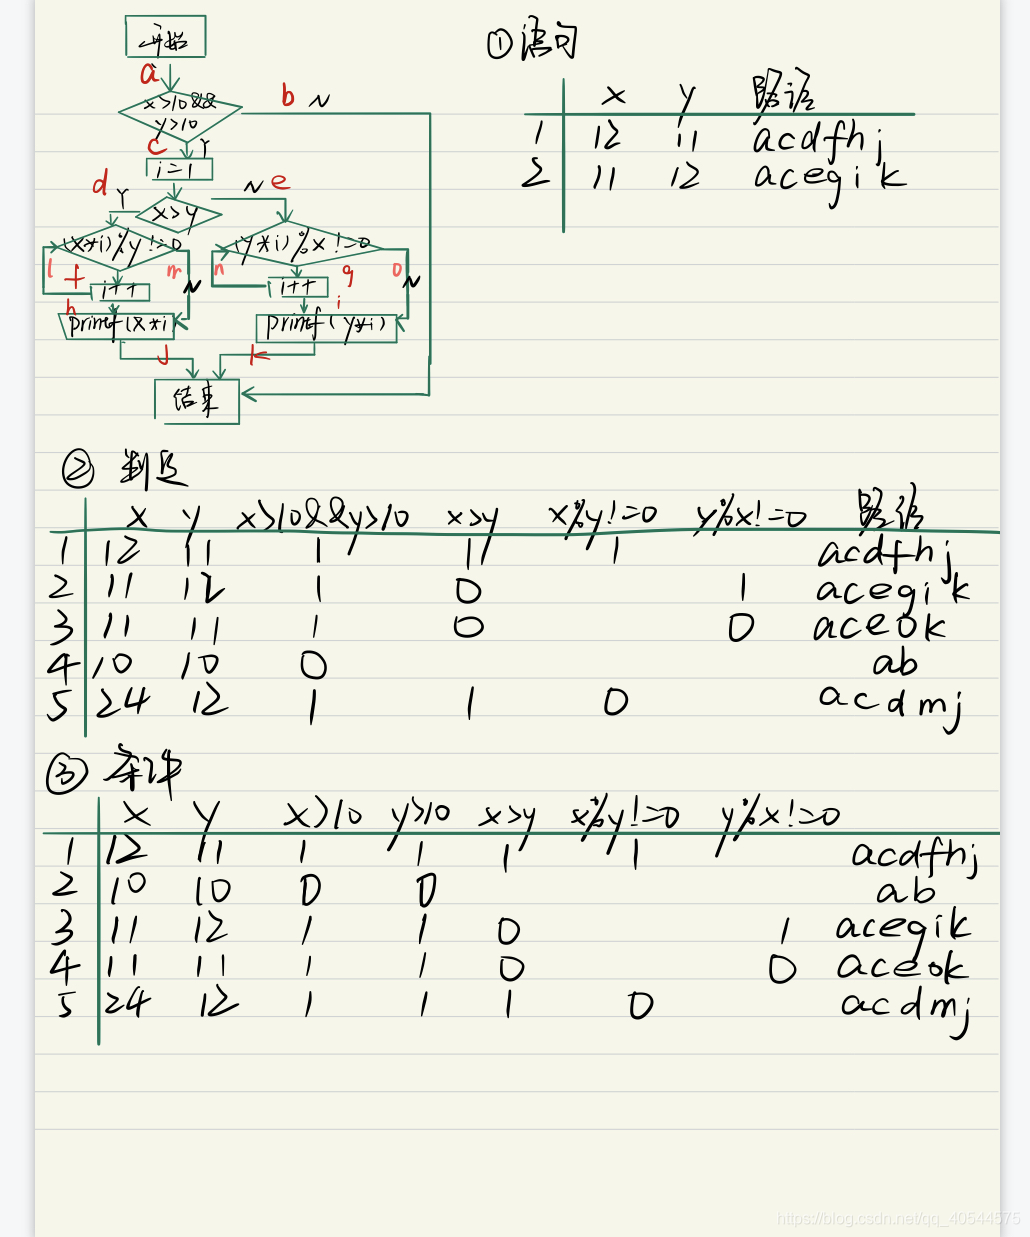 开始
① 语句
a
x>10&&
y>10
b N
c Y
i=1
x y 路径
1 12 11 acdfhj
2 11 12 acegik
d Y
N e
x>y
(x*i)%y!=0
(y*i)%x!=0
l f m N
n g o N
i++
i++
h
i
printf(x*i
printf(y*i)
j
k
结束
② 判定
x y x>10&&y>10 x>y x%y!=0 y%x!=0 路径
1 12 11 1 1 1 acdfhj
2 11 12 1 0 1 acegik
3 11 11 1 0 0 aceok
4 10 10 0 ab
5 24 12 1 1 0 acdmj
③ 条件
x y x>10 y>10 x>y x%y!=0 y%x!=0
1 12 11 1 1 1 1 acdfhj
2 10 10 0 0 ab
3 11 12 1 1 0 1 acegik
4 11 11 1 1 0 0 aceok
5 24 12 1 1 1 0 acdmj
https://blog.csdn.net/qq_40544575